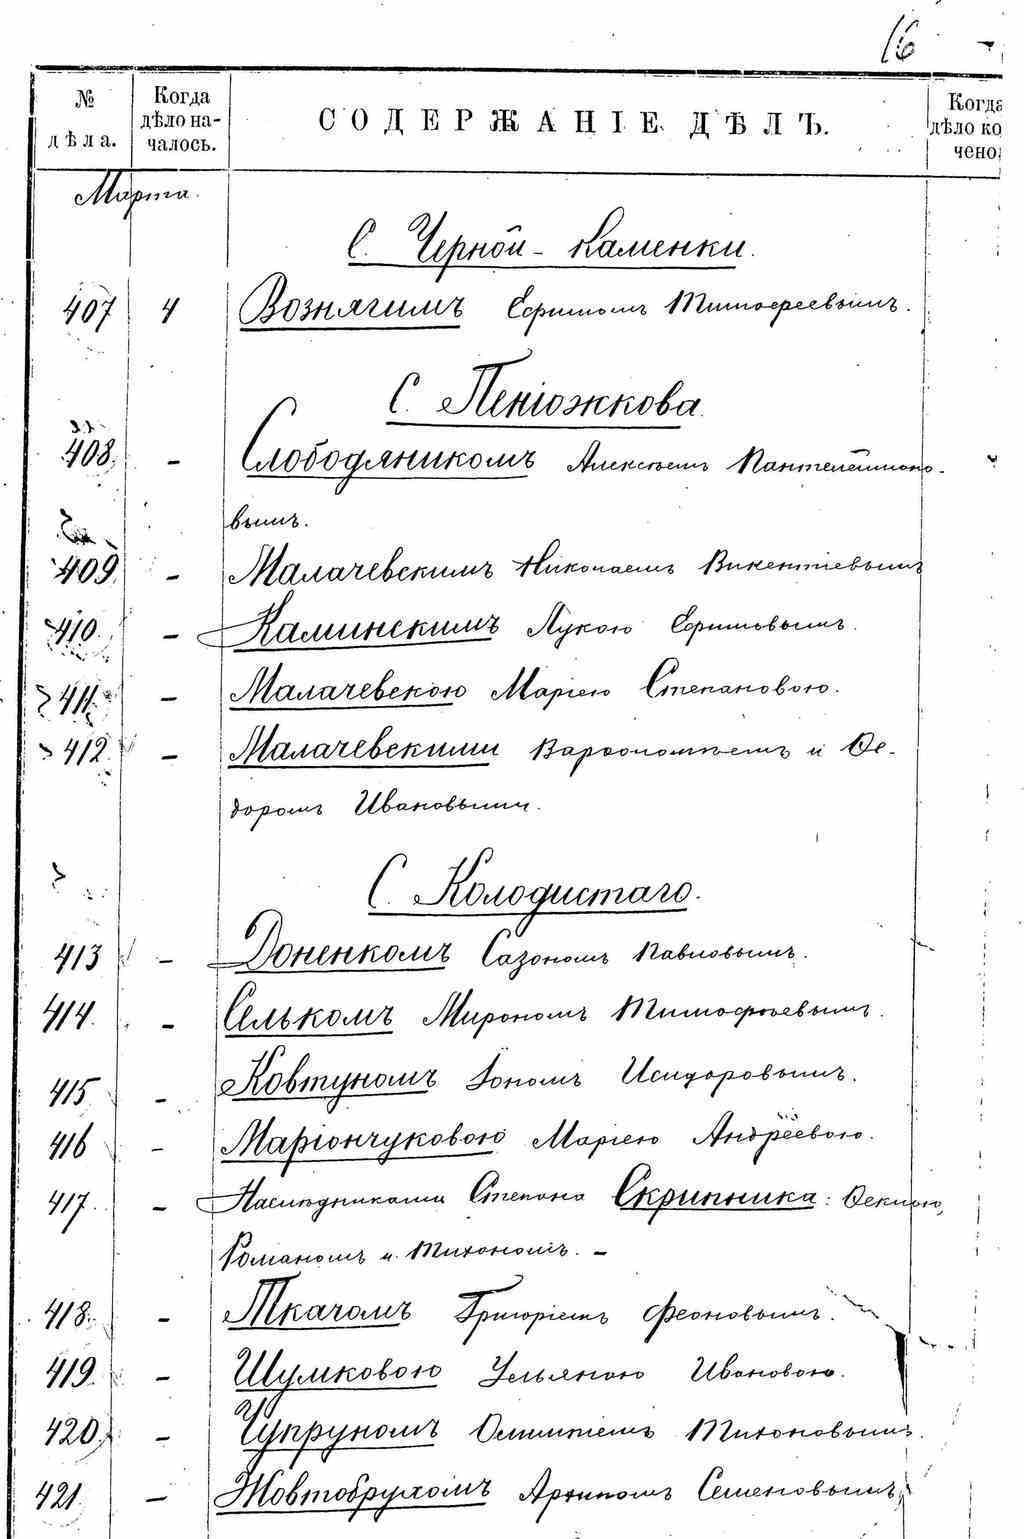 16
№ дѣла. Когда дѣло началось. СОДЕРЖАНІЕ ДѢЛЪ. Когда дѣло ко чено
Марта.
С. Черной-Каменки.
407 4 Вознягимъ Ефимомъ Тимофеевымъ.
С. Пеніожкова
408. - Слободяникомъ Алексѣемъ Пантелеймоно-
вымъ.
409. - Малачевскимъ Николаемъ Викентіевымъ
410. - Каминскимъ Лукою Ефимовымъ.
411. - Малачевскою Маріею Степановою.
412. - Малачевскими Варфоломѣемъ и Ѳе-
доромъ Ивановыми.
С. Колодистаго.
413 - Доненкомъ Сазономъ Павловымъ.
414. - Селькомъ Мирономъ Тимофѣевымъ.
415 - Ковтуномъ Іономъ Исидоровымъ.
416 - Маріончуковою Маріею Андреевою.
417. - Наслѣдниками Степана Скрипника: Ѳеклою,
Романомъ и Тихономъ. -
418. - Ткачомъ Григоріемъ Феоновымъ.
419. - Шумковою Ульяною Ивановою.
420. - Чупруномъ Тихоновымъ.
421 - Жовтобрухомъ Архипомъ Семеновымъ,